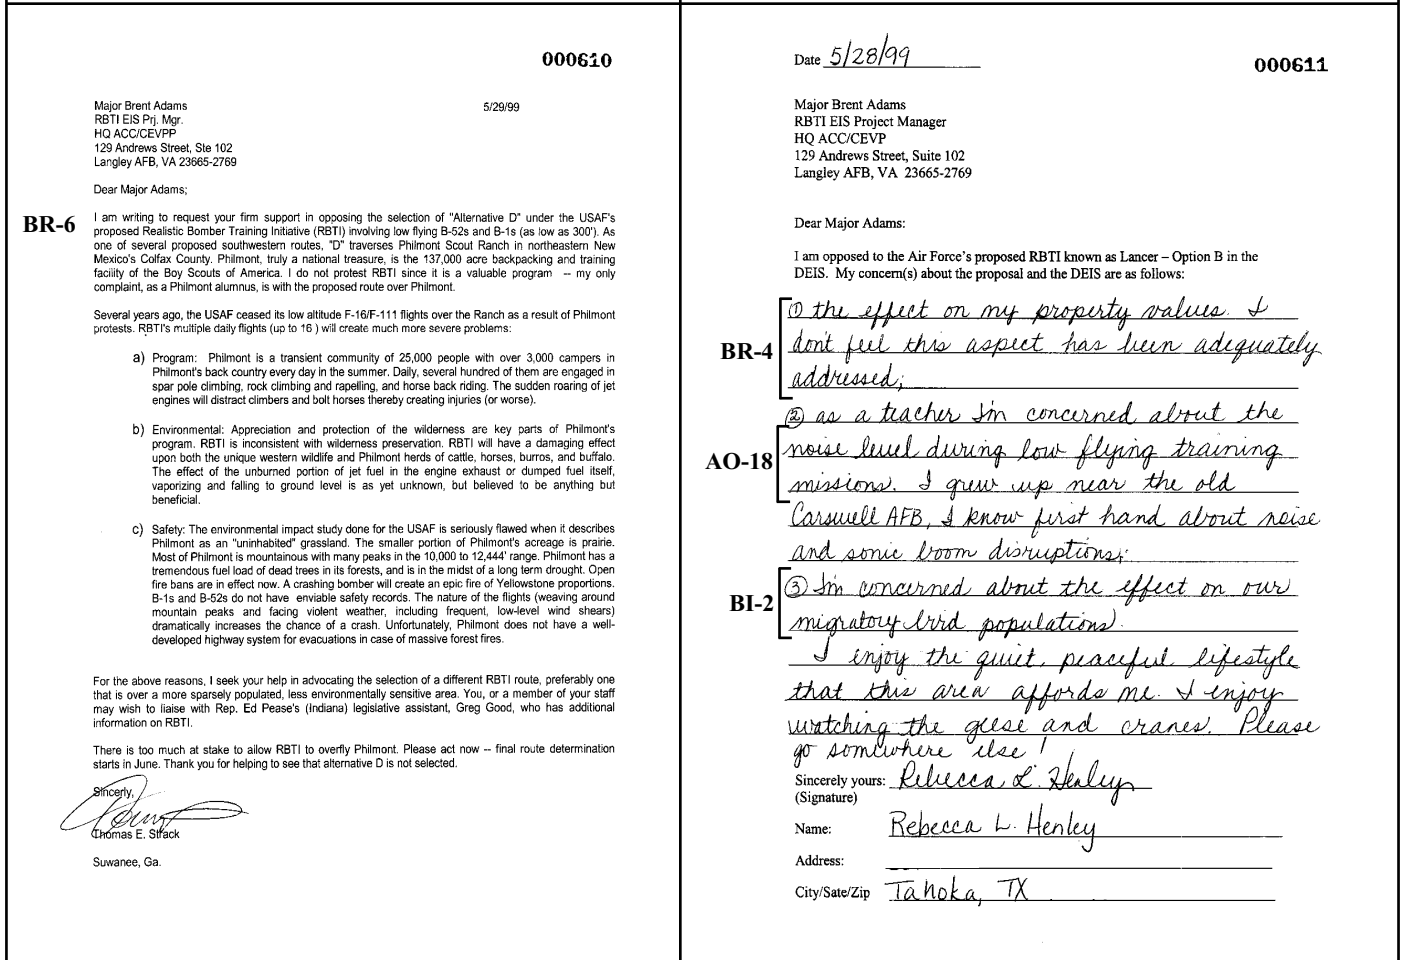 000610
Major Brent Adams
5/29/99
RBTI EIS Prj. Mgr.
HQ ACC/CEVPP
129 Andrews Street, Ste 102
Langley AFB, VA 23665-2769
Dear Major Adams;
BR-6
I am writing to request your firm support in opposing the selection of "Alternative D" under the USAF's
proposed Realistic Bomber Training Initiative (RBTI) involving low flying B-52s and B-1s (as low as 300'). As
one of several proposed southwestern routes, "D" traverses Philmont Scout Ranch in northeastern New
Mexico's Colfax County. Philmont, truly a national treasure, is the 137,000 acre backpacking and training
facility of the Boy Scouts of America. I do not protest RBTI since it is a valuable program -- my only
complaint, as a Philmont alumnus, is with the proposed route over Philmont.
Several years ago, the USAF ceased its low altitude F-16/F-111 flights over the Ranch as a result of Philmont
protests. RBTI's multiple daily flights (up to 16 ) will create much more severe problems:
a) Program: Philmont is a transient community of 25,000 people with over 3,000 campers in
Philmont's back country every day in the summer. Daily, several hundred of them are engaged in
spar pole climbing, rock climbing and rapelling, and horse back riding. The sudden roaring of jet
engines will distract climbers and bolt horses thereby creating injuries (or worse).
b) Environmental: Appreciation and protection of the wilderness are key parts of Philmont's
program. RBTI is inconsistent with wilderness preservation. RBTI will have a damaging effect
upon both the unique western wildlife and Philmont herds of cattle, horses, burros, and buffalo.
The effect of the unburned portion of jet fuel in the engine exhaust or dumped fuel itself,
vaporizing and falling to ground level is as yet unknown, but believed to be anything but
beneficial.
c) Safety: The environmental impact study done for the USAF is seriously flawed when it describes
Philmont as an "uninhabited" grassland. The smaller portion of Philmont's acreage is prairie.
Most of Philmont is mountainous with many peaks in the 10,000 to 12,444' range. Philmont has a
tremendous fuel load of dead trees in its forests, and is in the midst of a long term drought. Open
fire bans are in effect now. A crashing bomber will create an epic fire of Yellowstone proportions.
B-1s and B-52s do not have enviable safety records. The nature of the flights (weaving around
mountain peaks and facing violent weather, including frequent, low-level wind shears)
dramatically increases the chance of a crash. Unfortunately, Philmont does not have a well-
developed highway system for evacuations in case of massive forest fires.
For the above reasons, I seek your help in advocating the selection of a different RBTI route, preferably one
that is over a more sparsely populated, less environmentally sensitive area. You, or a member of your staff
may wish to liaise with Rep. Ed Pease's (Indiana) legislative assistant, Greg Good, who has additional
information on RBTI.
There is too much at stake to allow RBTI to overfly Philmont. Please act now -- final route determination
starts in June. Thank you for helping to see that alternative D is not selected.
Sincerely,
Thomas E. Strack
Suwanee, Ga.
Date 5/28/99
000611
Major Brent Adams
RBTI EIS Project Manager
HQ ACC/CEVP
129 Andrews Street, Suite 102
Langley AFB, VA 23665-2769
Dear Major Adams:
I am opposed to the Air Force's proposed RBTI known as Lancer – Option B in the
DEIS. My concern(s) about the proposal and the DEIS are as follows:
① the effect on my property values. I
BR-4 don't feel this aspect has been adequately
addressed;
② as a teacher I'm concerned about the
AO-18 noise level during low flying training
missions. I grew up near the old
Carswell AFB, I know first hand about noise
and sonic boom disruptions;
③ I'm concerned about the effect on our
BI-2 migratory bird populations.
I enjoy the quiet, peaceful lifestyle
that this area affords me. I enjoy
watching the geese and cranes. Please
go somewhere else!
Sincerely yours: Rebecca L. Henley
(Signature)
Name: Rebecca L. Henley
Address:
City/Sate/Zip Tahoka, TX